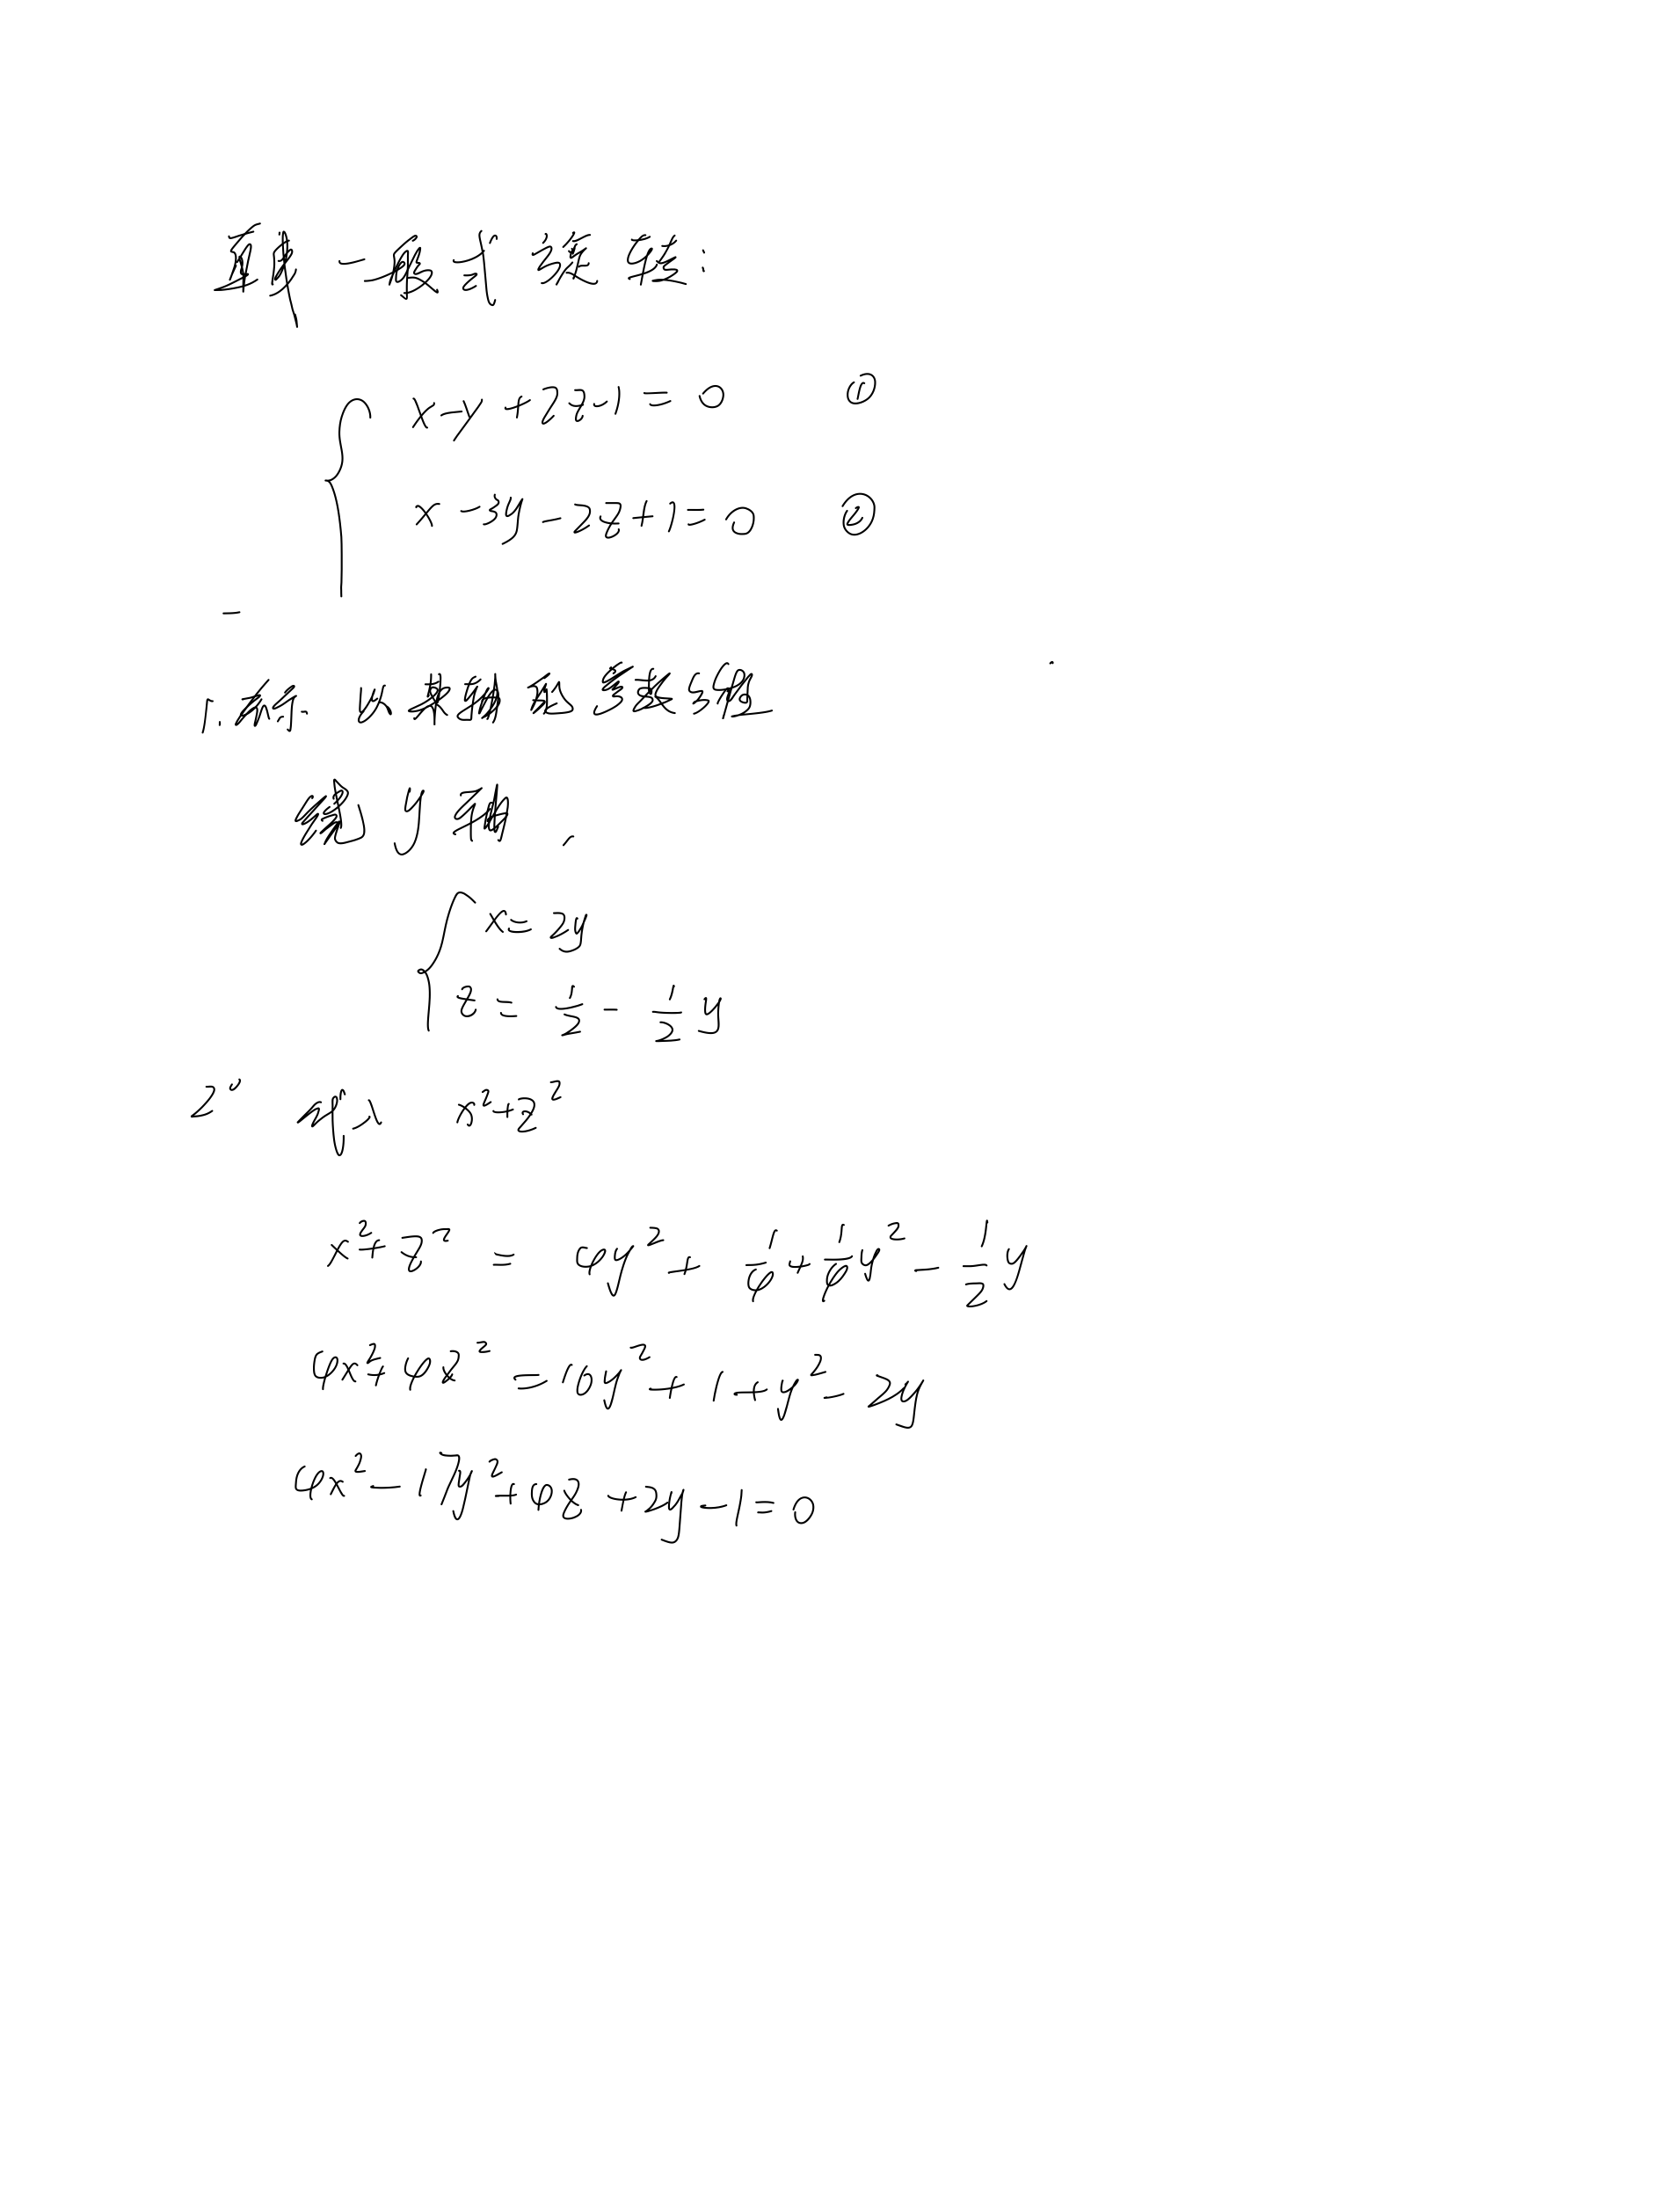 直线一般式旋转:
x-y+2z-1=0 ①
x-3y-2z+1=0 ②
1. 解析: 以某轴为参数组
绕 y 轴,
x=2y
z=1/2-1/2y
2° 代入 x²+z²
x²+z²=4y²+1/4+1/4y²-1/2y
4x²+4z²=16y²+1+y²-2y
4x²-17y²+4z+2y-1=0